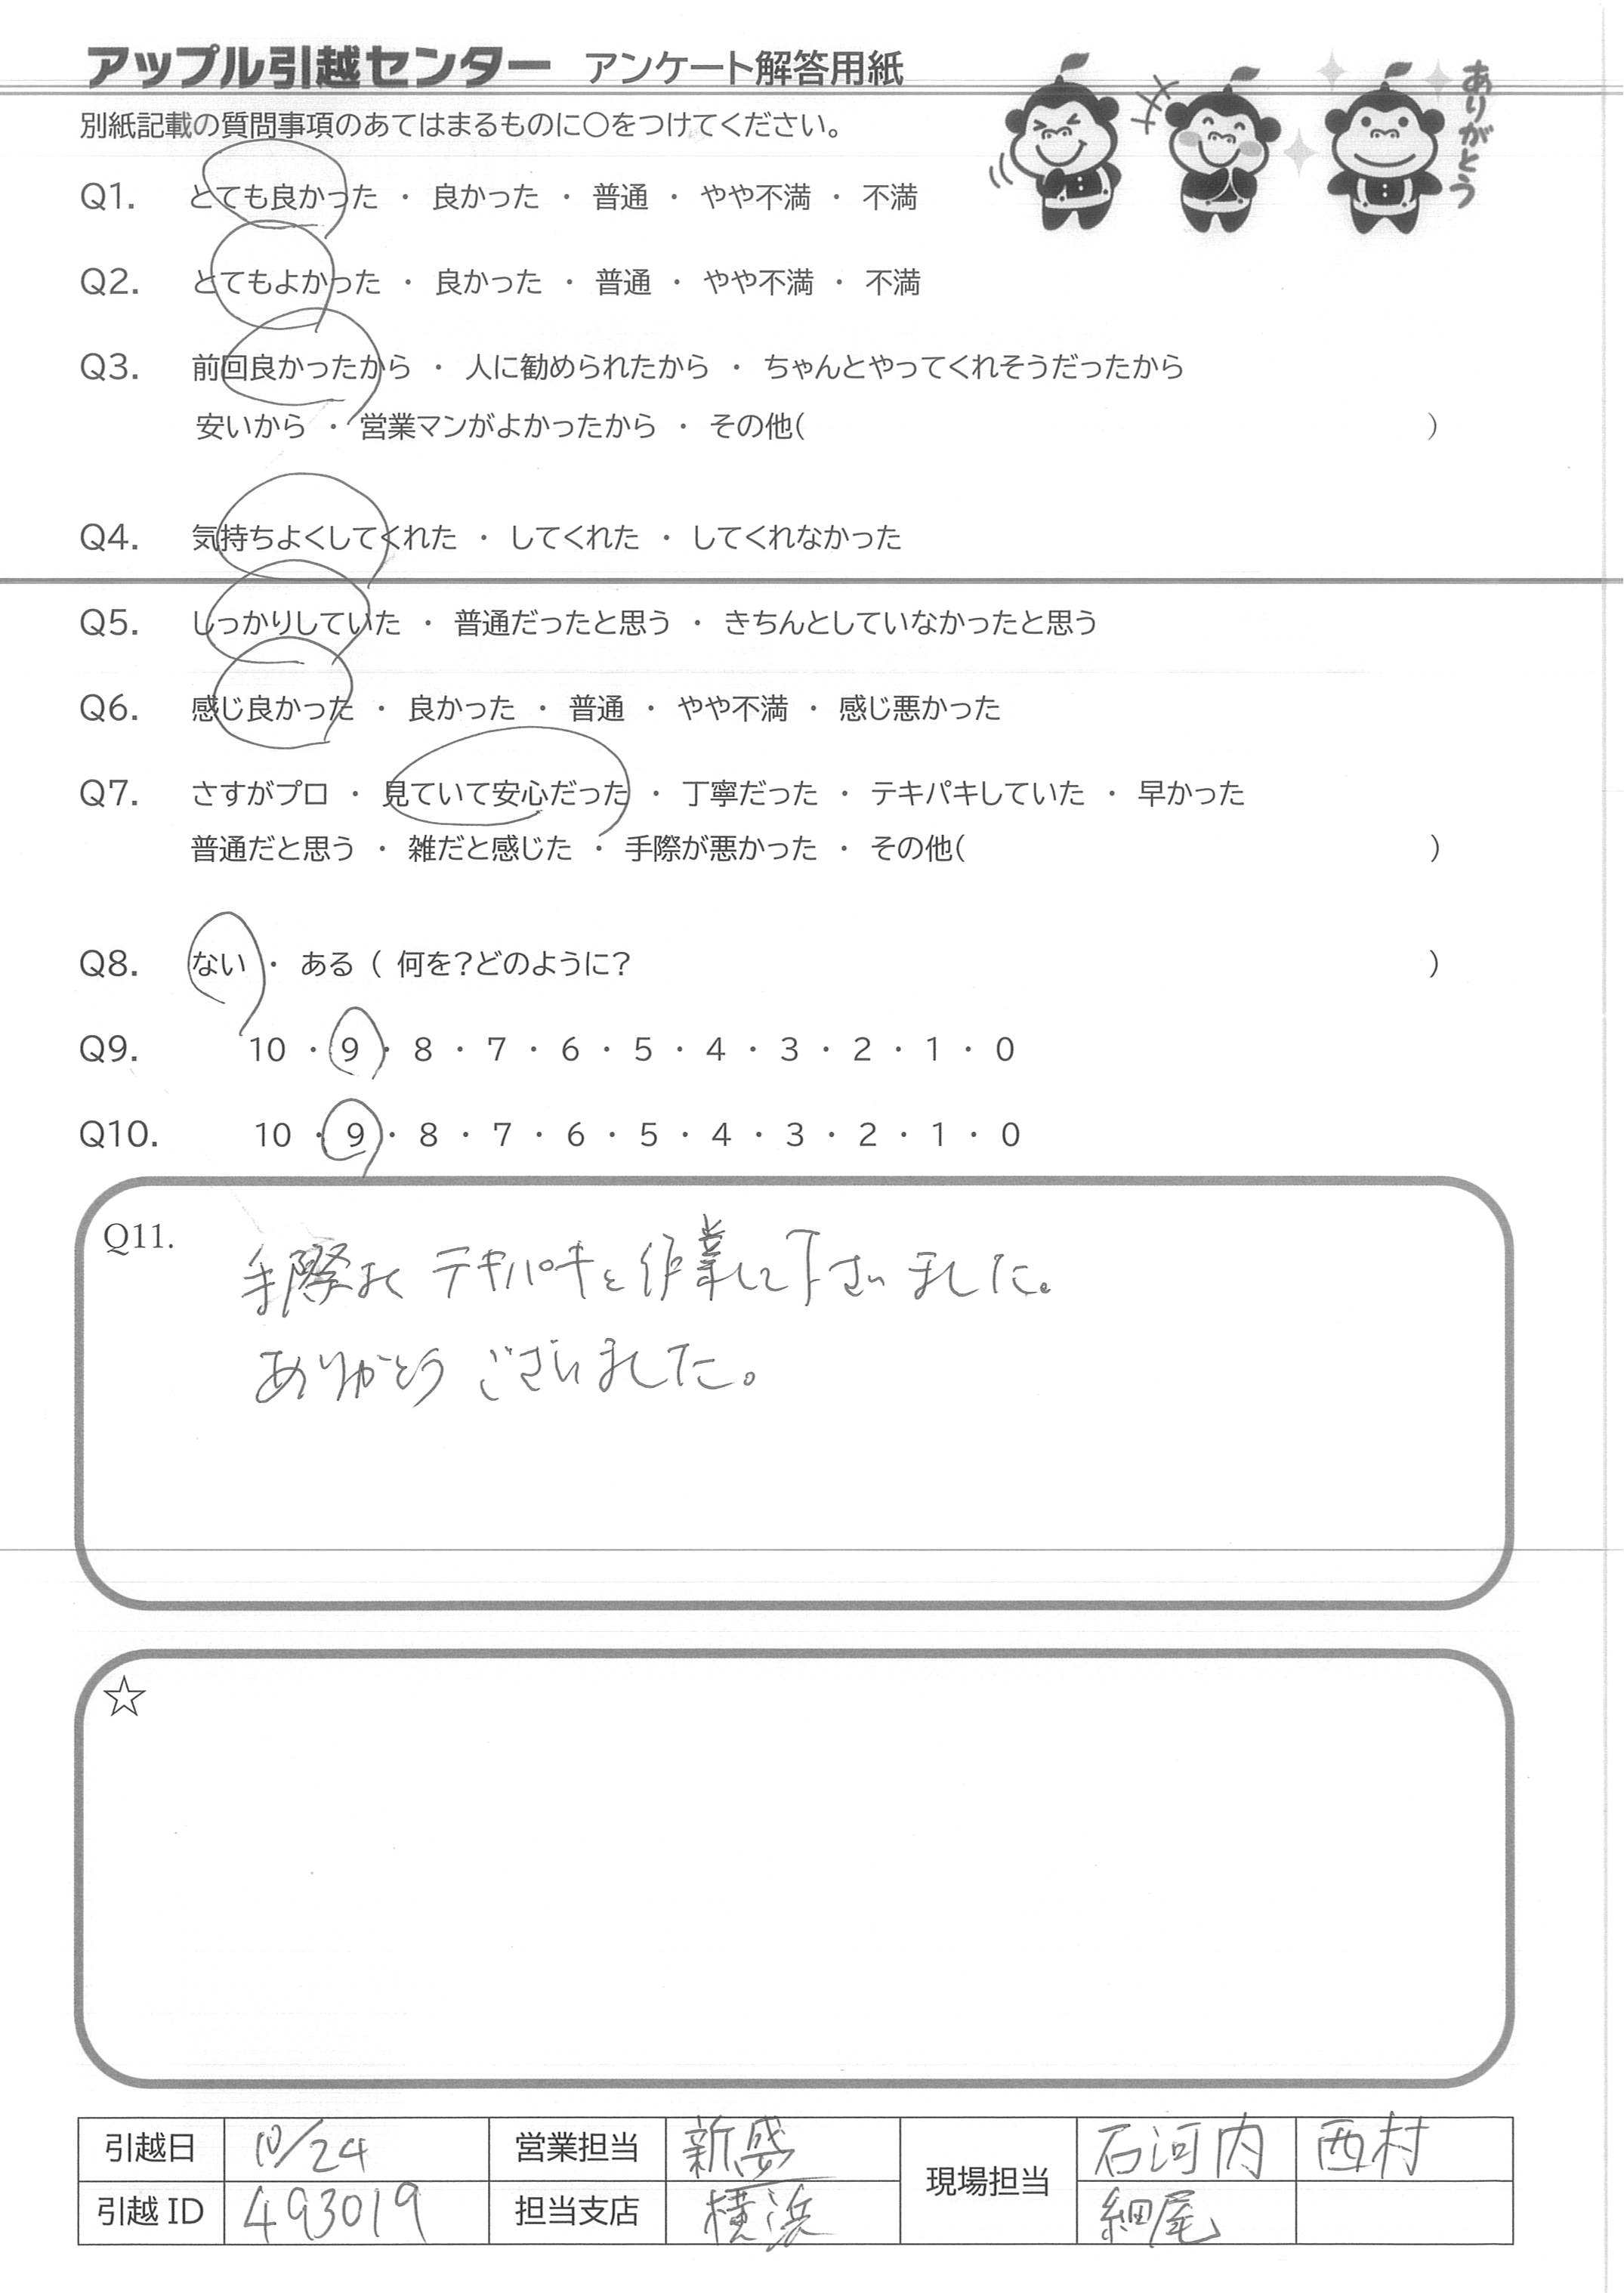 アップル引越センター アンケート解答用紙
ありがとう
別紙記載の質問事項のあてはまるものに○をつけてください。
Q1. とても良かった ・ 良かった ・ 普通 ・ やや不満 ・ 不満
Q2. とてもよかった ・ 良かった ・ 普通 ・ やや不満 ・ 不満
Q3. 前回良かったから ・ 人に勧められたから ・ ちゃんとやってくれそうだったから
安いから ・ 営業マンがよかったから ・ その他( )
Q4. 気持ちよくしてくれた ・ してくれた ・ してくれなかった
Q5. しっかりしていた ・ 普通だったと思う ・ きちんとしていなかったと思う
Q6. 感じ良かった ・ 良かった ・ 普通 ・ やや不満 ・ 感じ悪かった
Q7. さすがプロ ・ 見ていて安心だった ・ 丁寧だった ・ テキパキしていた ・ 早かった
普通だと思う ・ 雑だと感じた ・ 手際が悪かった ・ その他( )
Q8. ない ・ ある ( 何を?どのように? )
Q9. 10 ・ 9 ・ 8 ・ 7 ・ 6 ・ 5 ・ 4 ・ 3 ・ 2 ・ 1 ・ 0
Q10. 10 ・ 9 ・ 8 ・ 7 ・ 6 ・ 5 ・ 4 ・ 3 ・ 2 ・ 1 ・ 0
Q11.
手際よく テキパキと作業して下さいました。
ありがとうございました。
☆
引越日 10/24 営業担当 新盛 現場担当 石河内 西村
引越ID 493019 担当支店 横浜 細尾